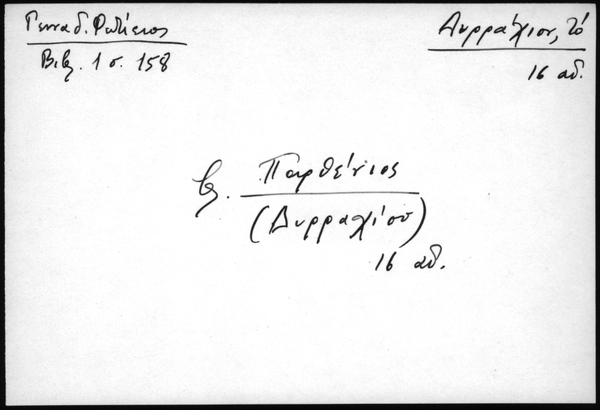 Γενναδ. Φωτίειος
Βιβλ. 1 σ. 158
Δυρράχιον, τό
16 αἰ.
βλ. Παρθένιος
(Δυρραχίου)
16 αἰ.